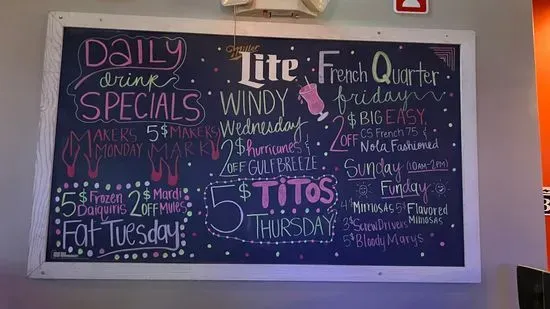 DAILY
drink
SPECIALS
MAKERS
MONDAY
5$ MAKERS
MARK
5$ Frozen
Daiquiris
2$ OFF Mardi
Mules
Fat Tuesday
Miller
Lite
WINDY
Wednesday
2$ OFF hurricanes &
GULFBREEZE
5$ TITOS
THURSDAY
French Quarter
friday
2$ OFF BIG EASY,
CS French 75 &
Nola Fashioned
Sunday (10AM-2PM)
Funday
4$ Mimosas 5$ Flavored
Mimosas
3$ ScrewDrivers
5$ Bloody Marys